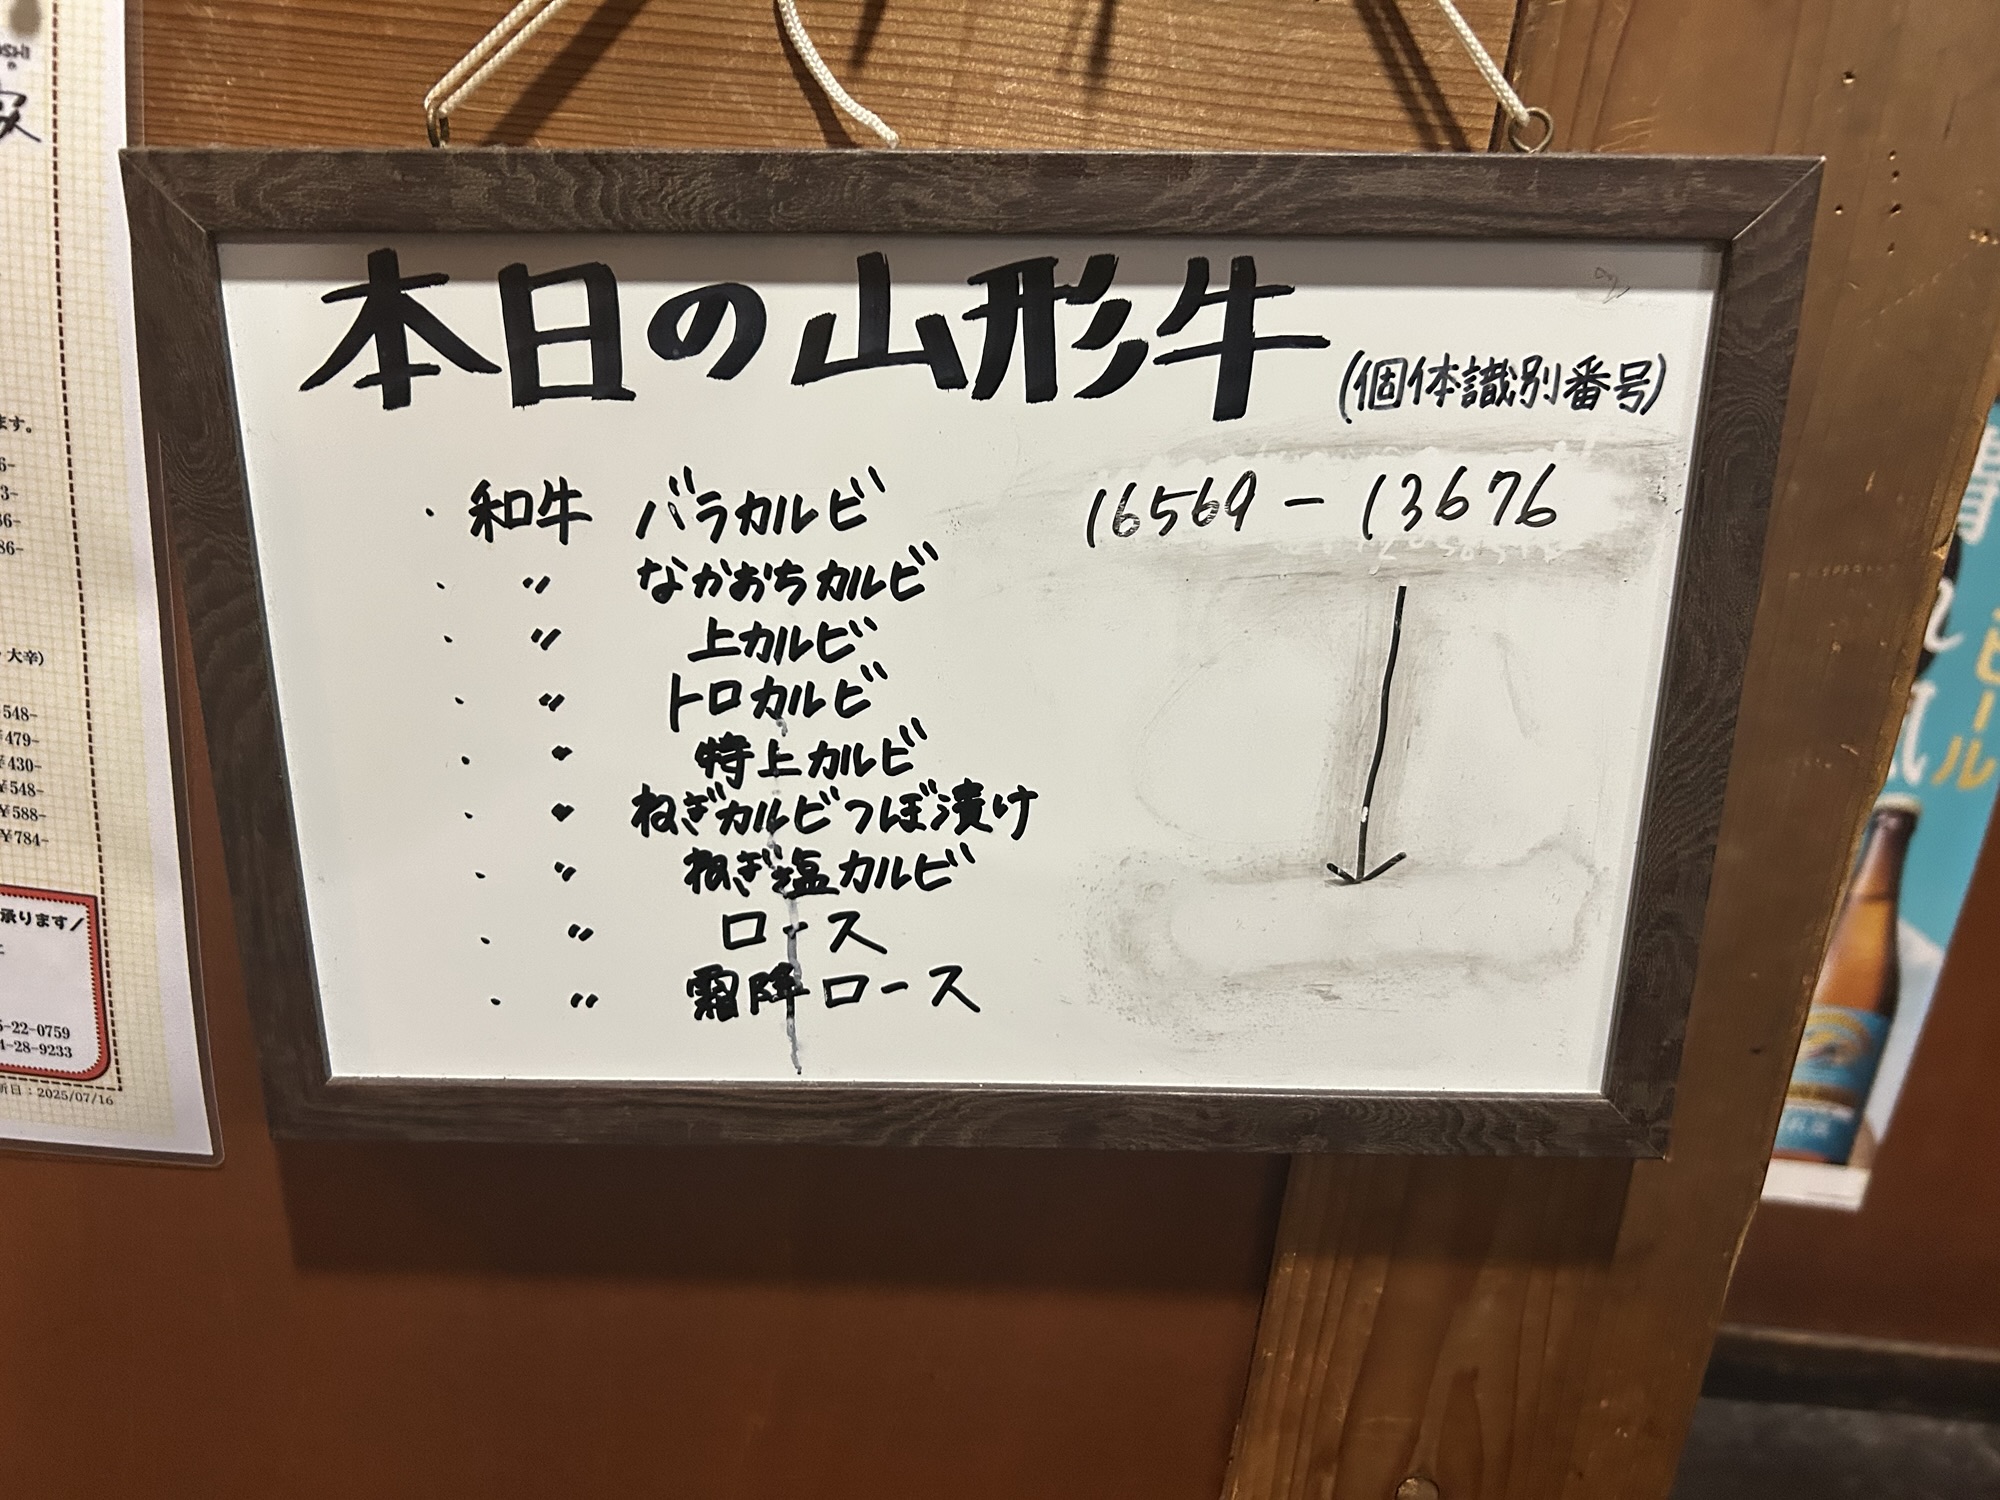 本日の山形牛 (個体識別番号)
・和牛 バラカルビ 16569-13676
・〃 なかおちカルビ
・〃 上カルビ
・〃 トロカルビ
・〃 特上カルビ
・〃 ねぎカルビつぼ漬け
・〃 ねぎ塩カルビ
・〃 ロース
・〃 霜降ロース
ます。
大辛)
548-
¥479-
¥430-
¥548-
¥588-
¥784-
承ります/
5-22-0759
4-28-9233
新日:2025/07/16
ビール